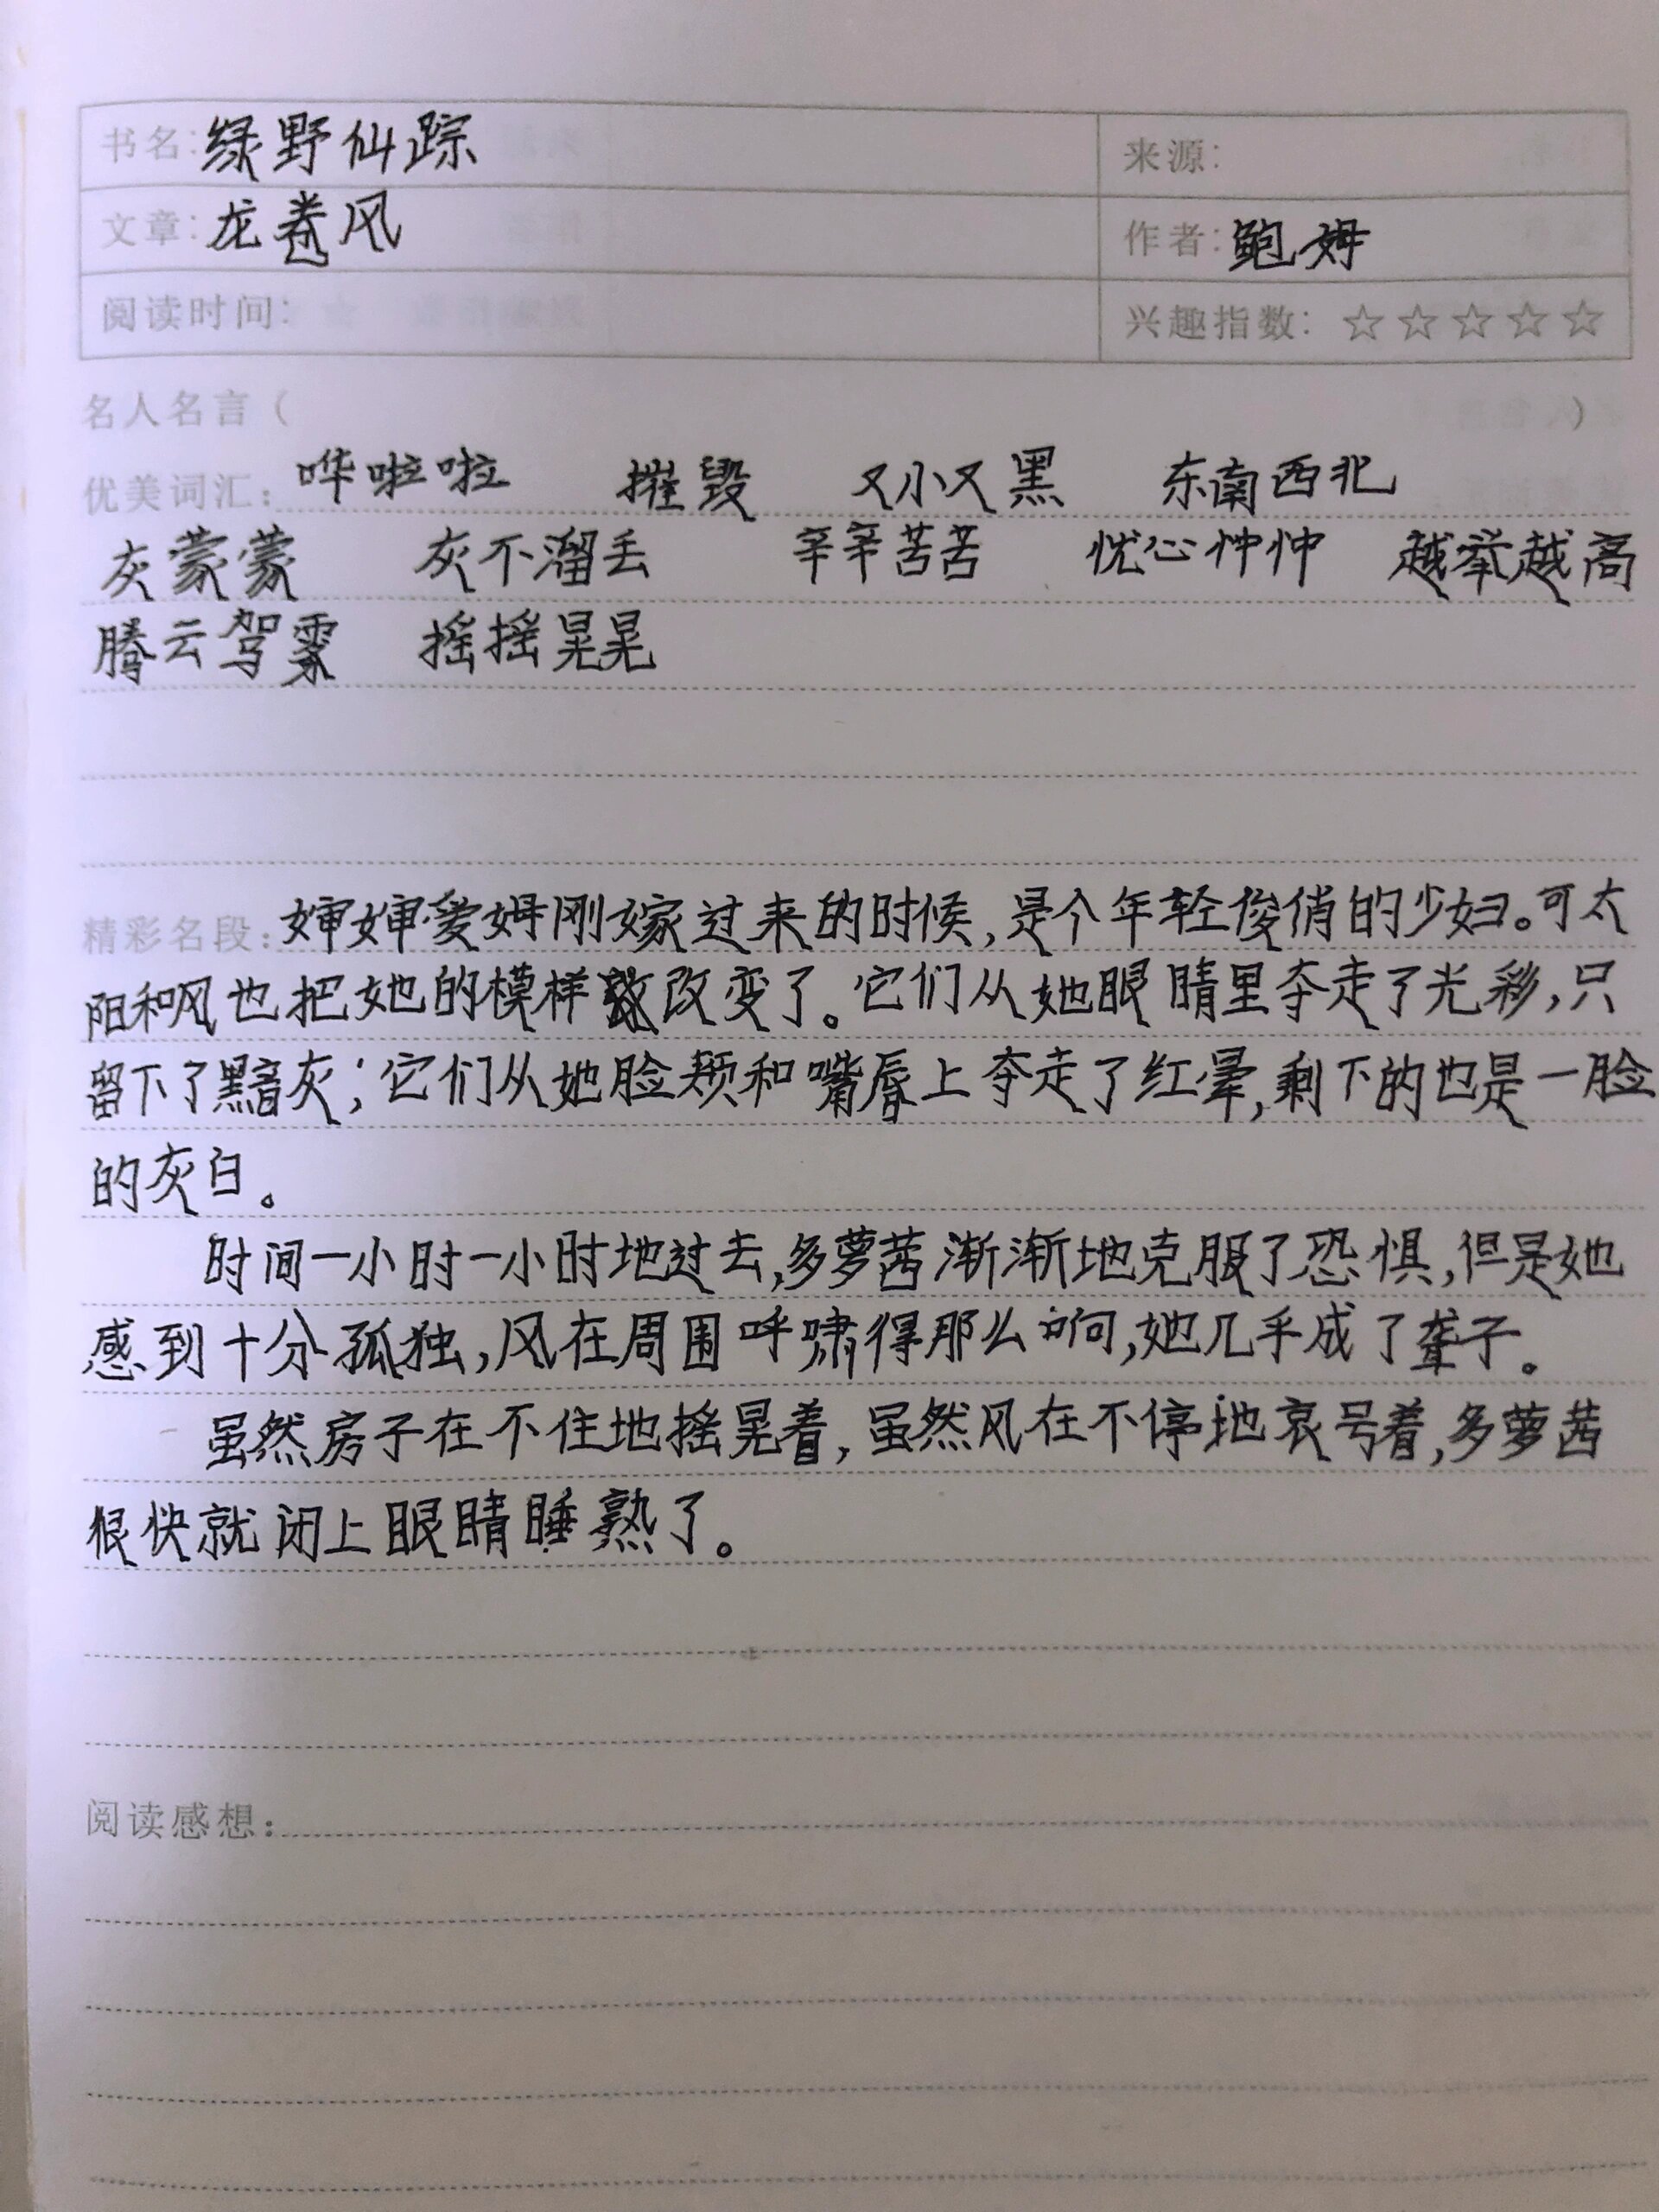 书名：绿野仙踪 来源：
文章：龙卷风 作者：鲍姆
阅读时间： 兴趣指数：☆☆☆☆☆
名人名言（ ）
优美词汇：哗啦啦 摧毁 又小又黑 东南西北
灰蒙蒙 灰不溜丢 辛辛苦苦 忧心忡忡 越举越高
腾云驾雾 摇摇晃晃
精彩名段：婶婶爱姆刚嫁过来的时候，是个年轻俊俏的少妇。可太
阳和风也把她的模样改变了。它们从她眼睛里夺走了光彩，只
留下了黯灰；它们从她脸颊和嘴唇上夺走了红晕，剩下的也是一脸
的灰白。
时间一小时一小时地过去，多萝茜渐渐地克服了恐惧，但是她
感到十分孤独，风在周围呼啸得那么响，她几乎成了聋子。
虽然房子在不住地摇晃着，虽然风在不停地哀号着，多萝茜
很快就闭上眼睛睡熟了。
阅读感想：